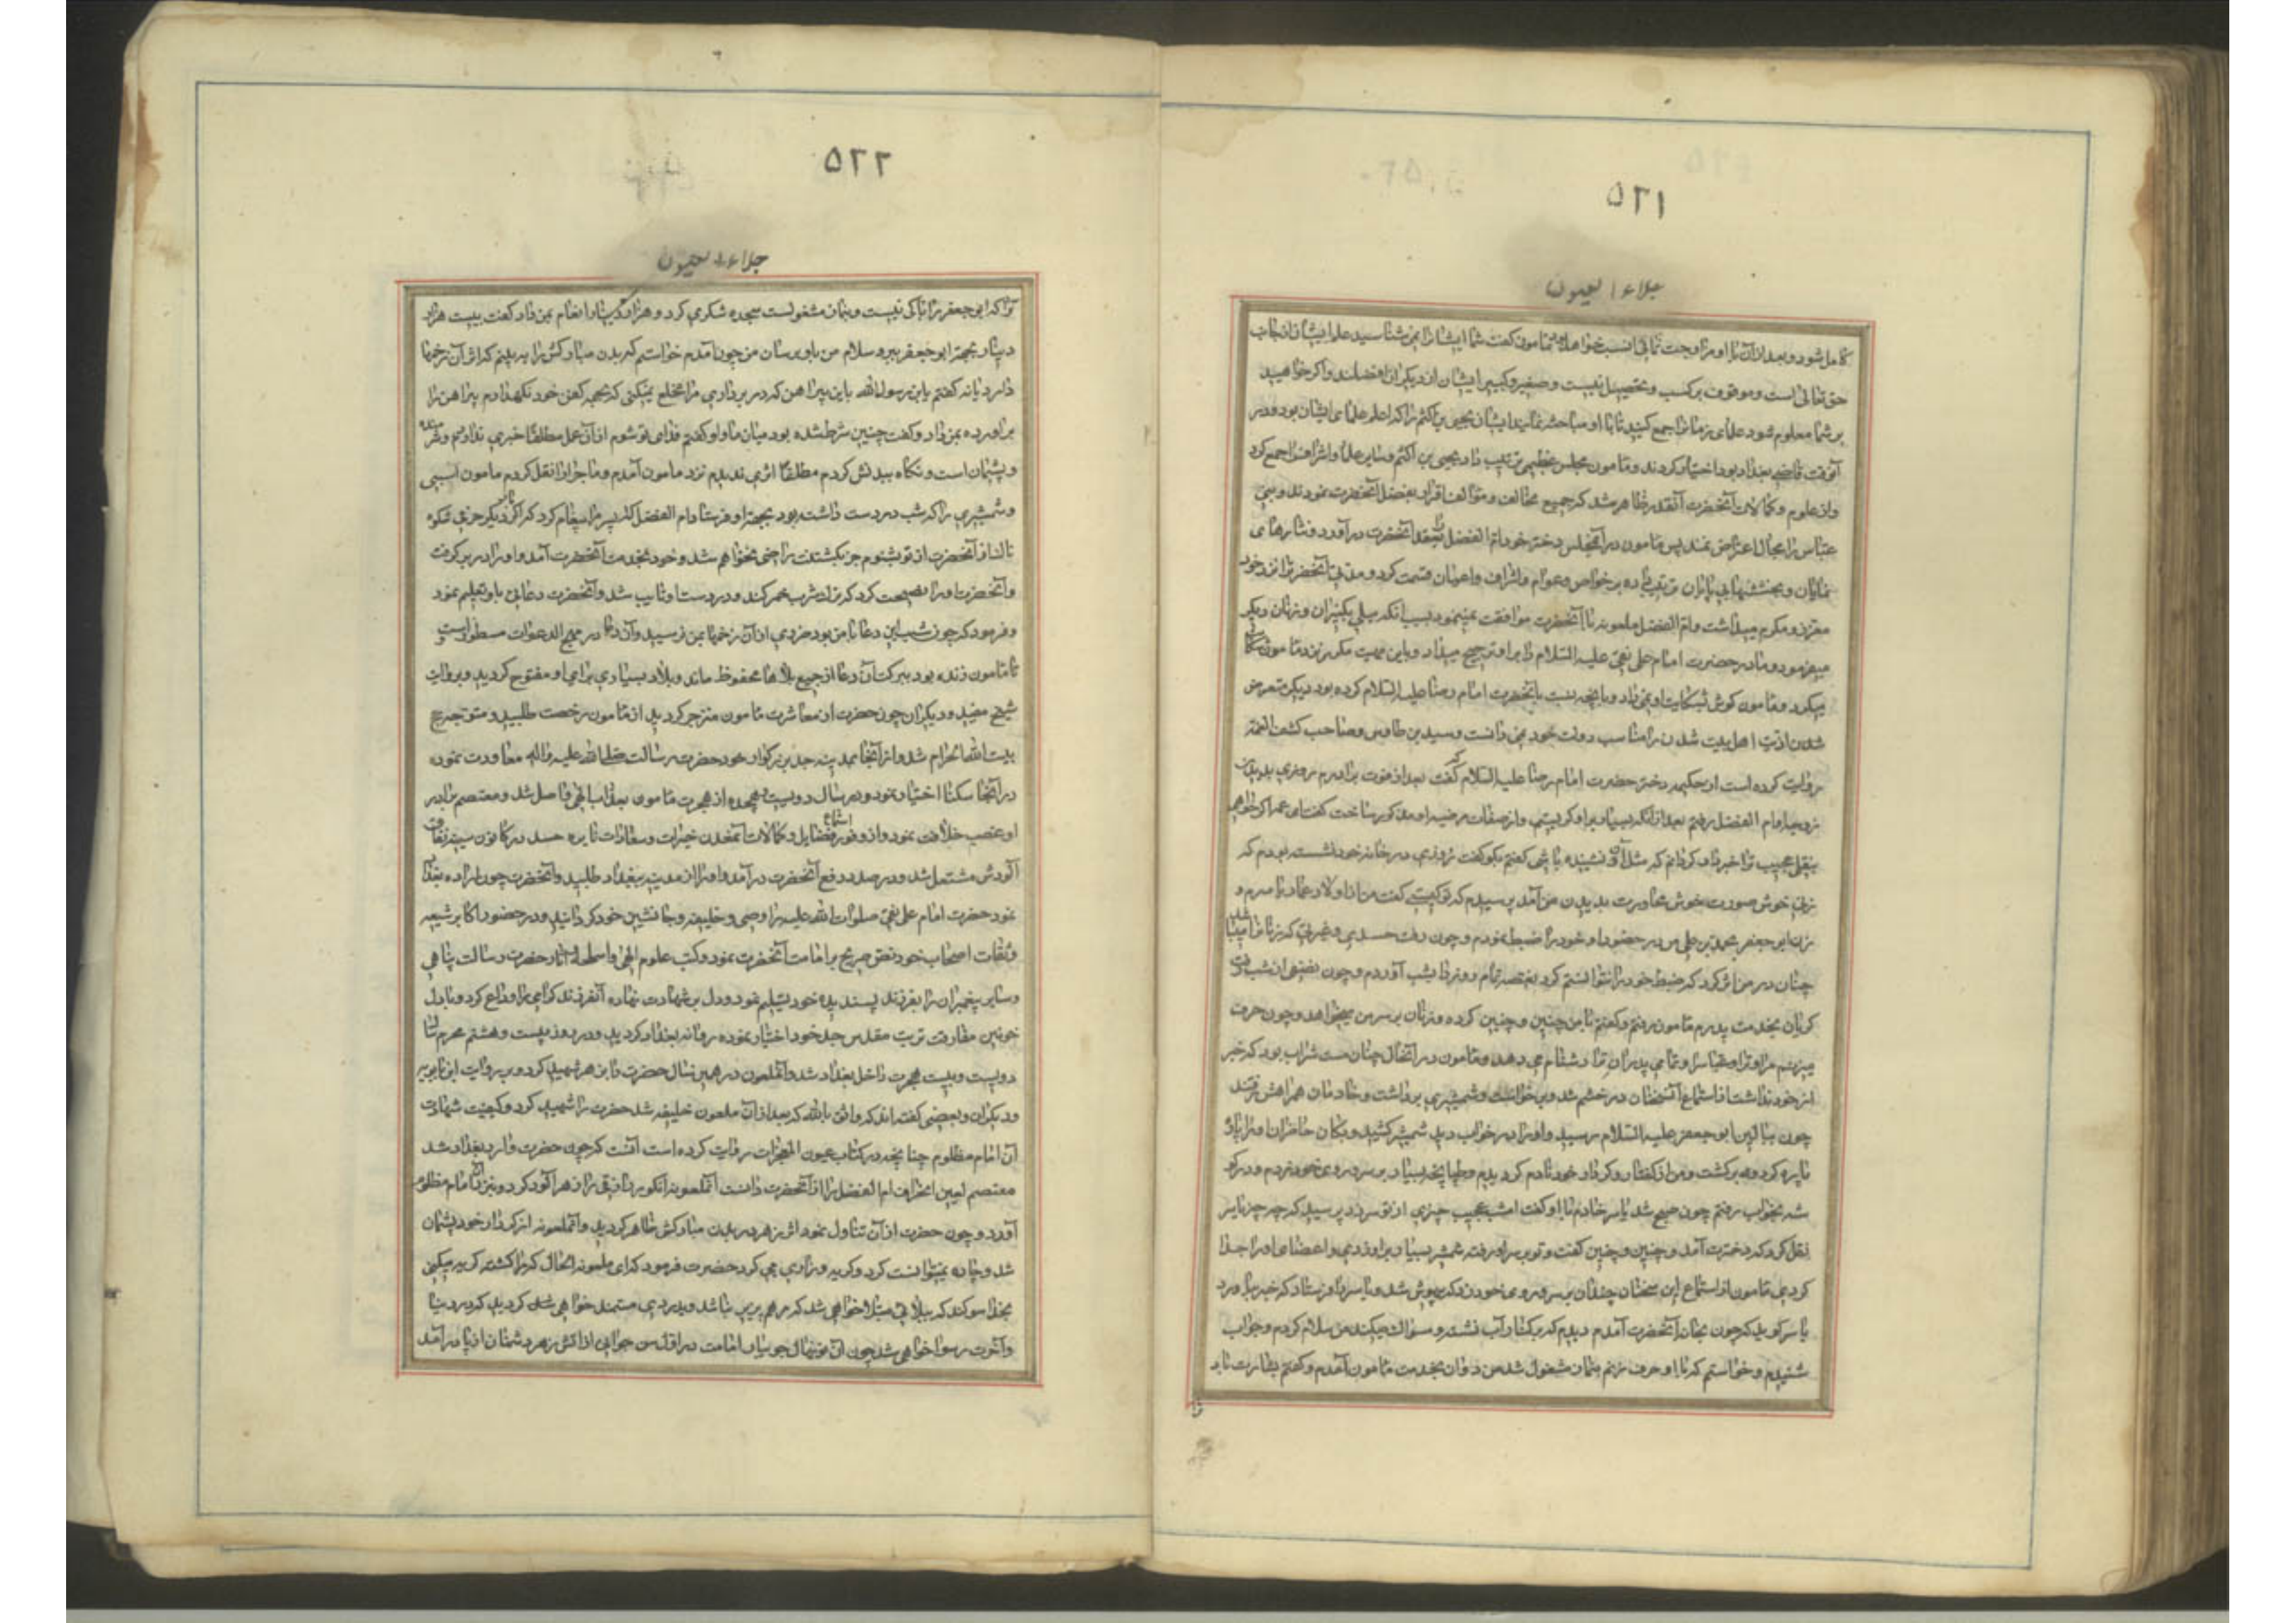 ۵۲۱
جلاء العیون
کامل شود و بعد از آن با او مزاوجت نمائی انسب خواهد بود مامون کفت شما ایشانرا نمی شناسید علم ایشان از جانب
حق تعالی است و موقوف بر کسب و تحصیل نیست و صغیر و کبیر ایشان از دیکران افضلند و اکر خواهید
بر شما معلوم شود علمای زمانرا جمع کنید تا با او مباحثه نمایند ایشان یحیی بن اکثم را که اعلم علمای ایشان بود و در
آنوقت قاضی بغداد بود اختیار کردند و مامون مجلس عظیمی ترتیب داد یحیی بن اکثم و سایر علما و اشرافرا جمع کرد
و از علوم و کمالات آنحضرت آنقدر ظاهر شد که جمیع مخالف و موالف اقرار بفضل آنحضرت نمودند و بنی
عباس را مجال اعتراض نماند پس مامون در آنمجلس دختر خود ام الفضل را بعقد آنحضرت در آورد و نثارهای
نمایان و بخششهای بی پایان ترتیب داده بر خواص و عوام و اشراف و اعیان قسمت کرد و مدتی آنحضرترا نزد خود
معزز و مکرم میداشت و ام الفضل ملعونه با آنحضرت موافقت نمینمود بسبب آنکه میلی بکنیزان و زنان دیکر
میفرمود و مادر حضرت امام علی نقی علیه السلام را بر او ترجیح میداد و باین سبب مکرر نزد مامون شکایت
میکرد و مامون کوش بشکایت او نمی داد و بآنچه نسبت بآنحضرت امام رضا علیه السلام کرده بود دیکر متعرض
شدن اذیت اهل بیت شدن را مناسب دولت خود نمی دانست و سید بن طاوس و صاحب کشف الغمه
روایت کرده است از حکیمه دختر حضرت امام رضا علیه السلام که کفت بعد از فوت برادرم روزی بدیدن
زوجه او ام الفضل رفتم بعد از آنکه بسیار بر او کریستیم و از صفات مرضیه او مذکور ساخت کفت ای عمه اکر خواهی
بنقل عجیب ترا خبر دار کردانم که مثل آن نشنیده باشی کفتم بکو کفت روزی در خانه خود نشسته بودم که
زنی خوش صورت خوش محاورت بدیدن من آمد پرسیدم که تو کیستی کفت من از اولاد عمار یاسرم و
زن ابو جعفر محمد بن علی من در حضور او خود را ضبط نمودم و چون رفت حسدی و غیرتی که زنانرا میباشد
چنان در من اثر کرد که ضبط خود را نتوانستم کرد بغصه تمام روز را بشب آوردم و چون نصفی از شب رفت
کریان بخدمت پدرم مامون رفتم و کفتم با من چنین و چنین کرده و زنان بر سر من میخواهد و چون حرف
میزنم مرا و ترا و عباسرا و تمامی پدران ترا دشنام می دهد و مامون در آنحال چنان مست شراب بود که خبر
از خود نداشت از استماع آنسخنان در خشم شد و برخواست و شمشیری برداشت و خادمان همراهش رفتند
چون ببالین ابو جعفر علیه السلام رسید و او را در خواب دید شمشیر کشید و بکان حاضران او را پاره
پاره کرد و برکشت و من از کفتار و کردار خود نادم کردیدم و طپانچه بسیار بر سر و روی خود زدم و در کو
شه بخواب رفتم چون صبح شد یاسر خادم با او کفت امشب عجیب چیزی از تو سر زد پرسید که چه چیز یاسر
نقل کرد که دخترت آمد و چنین و چنین کفت و تو بر سر او رفته شمشیر بسیار بر او زدی و اعضای او را جدا
کردی مامون از استماع این سخنان چندان بر سر و روی خود زد که بیهوش شد و یاسر را فرستاد که خبر بیاورد
یاسر کوید که چون بخانه آنحضرت آمدم دیدم که بر کنار آب نشسته و مسواک میکند من سلام کردم و جواب
شنیدم و خواستم که با او حرف زنم بنماز مشغول شد من دوان بخدمت مامون آمدم و کفتم بشارت باد
۵۲۲
جلاء العیون
ترا که ابو جعفر را باکی نیست و بنماز مشغولست سجده شکری کرد و هزار دینار انعام بمن داد کفت بیست هزار
دینار بجهة ابو جعفر ببر و سلام من باو برسان من چون آمدم خواستم که بدن مبارکش را به بینم که اثر آن زخمها
دارد یا نه کفتم یا بن رسول الله باین پیراهن که در بر داری مرا مخلع نمیکنی که بجهة کفن خود نکهدارم پیراهن را
بر آورده بمن داد و کفت چنین شرط شده بود میان ما و او کفتم فدای تو شوم از آن عمل مطلقا خبری ندارد و شرمنده
و پشیمان است و نکاه ببدنش کردم مطلقا اثری ندیدم نزد مامون آمدم و ماجرا را نقل کردم مامون اسبی
و شمشیری را که شب در دست داشته بود بجهة او فرستاد و ام الفضل را پیغام کرد که اکر بار دیکر حرفی شکوه
تالناز آنحضرت از تو بشنوم جز بکشتنت راضی نخواهم شد و خود بخدمت آنحضرت آمد و او را در بر کرفت
و آنحضرت او را نصیحت کرد که ترک شرب خمر کند و در دست او تایب شد و آنحضرت دعائی باو تعلیم نمود
و فرمود که چون شب این دعا با من بود ضرری از آن زخمها بمن نرسید و آن دعا در مهج الدعوات مسطور است و
تا مامون زنده بود ببرکت آن دعا از جمیع بلاها محفوظ ماند و بلاد بسیاری برای او مفتوح کردید و بروایت
شیخ مفید و دیکران چون حضرت از معاشرت مامون منزجر کردید از مامون رخصت طلبید و متوجه حج
بیت الله الحرام شد و از آنجا بمدینه جد بزرکوار خود حضرت رسالت صلی الله علیه و اله معاودت نموده
در آنجا سکنا اختیار نمود و در سال دویست و هیجده از هجرت مامون بعذاب الهی واصل شد و معتصم برادر
او غصب خلافت نمود و از وفور استماع فضایل و کمالات آنمعدن خیرات و سعادات نایره حسد در کانون سینه نفاق
آلودش مشتعل شد و در صدد دفع آنحضرت در آمد و او را از مدینه ببغداد طلبید و آنحضرت چون اراده بغداد
نمود حضرت امام علی نقی صلوات الله علیه را وصی و خلیفه و جانشین خود کردانید و در حضور اکابر شیعه
و ثقات اصحاب خود نص صریح بر امامت آنحضرت نمود و کتب علوم الهی و اسلحه و آثار حضرت رسالت پناهی
و سایر پیغمبران را بفرزند پسندیده خود تسلیم نمود و دل بر شهادت نهاده آنفرزند کرامی را وداع کرد و با دل
خونین مفارقت تربت مقدس جد خود اختیار نموده روانه بغداد کردید و در روز بیست و هشتم محرم سال
دویست و بیست هجرت داخل بغداد شد و آنملعون در همین سال حضرت را بزهر شهید کرد و بروایت ابن بابویه
و دیکران و بعضی کفته اند که واثق بالله که بعد از آن ملعون خلیفه شد حضرت را شهید کرد و کیفیت شهادت
آن امام مظلوم چنانچه در کتاب عیون المعجزات روایت کرده است آنست که چون حضرت وارد بغداد شد
معتصم لعین انحراف ام الفضل را از آنحضرت دانست آنملعونه انکور رازقی را زهر آلود کرد و بنزد آن امام مظلوم
آورد و چون حضرت از آن تناول نمود اثر زهر در بدن مبارکش ظاهر کردید و آنملعونه از کردار خود پشیمان
شد و چاره نمیتوانست کرد و کریه و زاری می کرد حضرت فرمود که ای ملعونه الحال که مرا کشته کریه میکنی
بخدا سوکند که ببلائی مبتلا خواهی شد که مرهم پذیر نباشد و بدردی مستمند خواهی شد کردید که در دنیا
و آخرت رسوا خواهی شد چون آن نونهال جویبار امامت در اول سن جوانی از آتش زهر دشمنان از پا در آمد